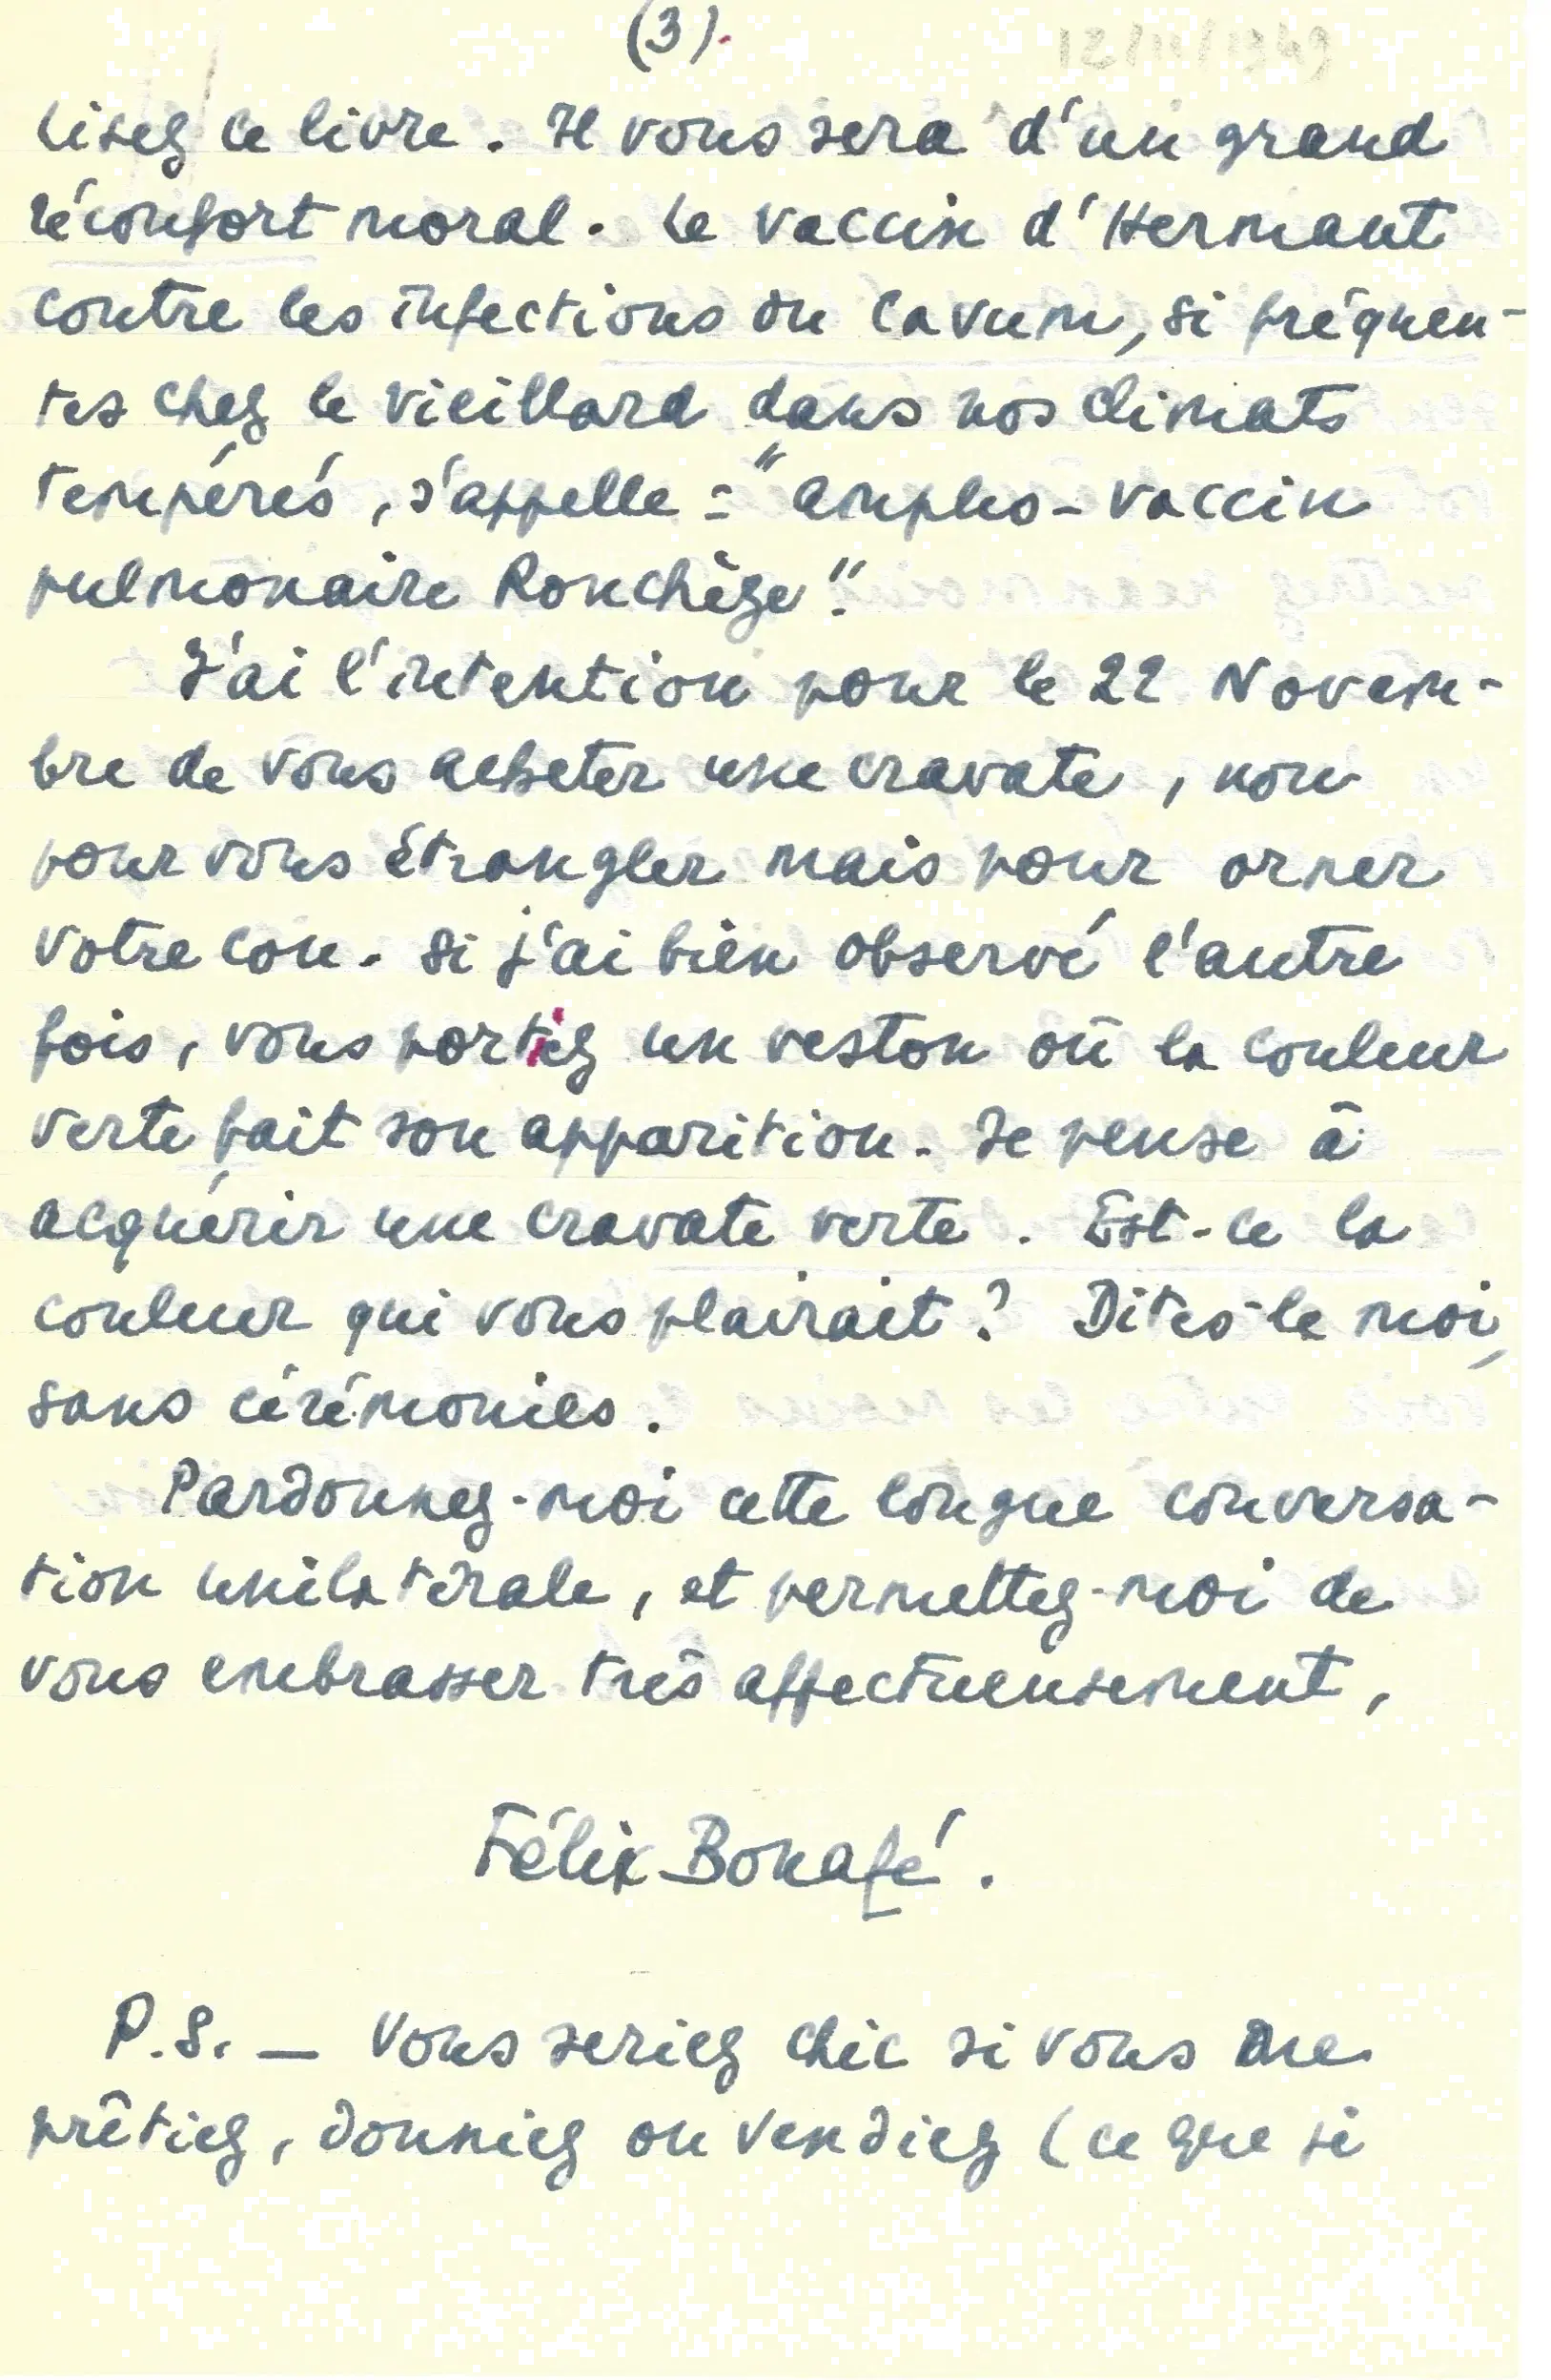 (3).
12/11/1949
Lisez ce livre. Il vous sera d'un grand
réconfort moral. Le vaccin d'Hermant
contre les infections du cavum, si fréquen-
tes chez le vieillard dans nos climats
tempérés, s'appelle : "ampho-vaccin
pulmonaire Ronchèze".
J'ai l'intention pour le 22 Novem-
bre de vous acheter une cravate, non
pour vous étrangler mais pour orner
votre cou. Si j'ai bien observé l'autre
fois, vous portiez un veston où la couleur
verte fait son apparition. Je pense à
acquérir une cravate verte. Est-ce la
couleur qui vous plairait ? Dites-le moi,
sans cérémonies.
Pardonnez-moi cette longue conversa-
tion unilatérale, et permettez-moi de
vous embrasser très affectueusement,
Félix Bonafé.
P.S. — Vous seriez chic si vous me
prêtiez, donniez ou vendiez (ce que je